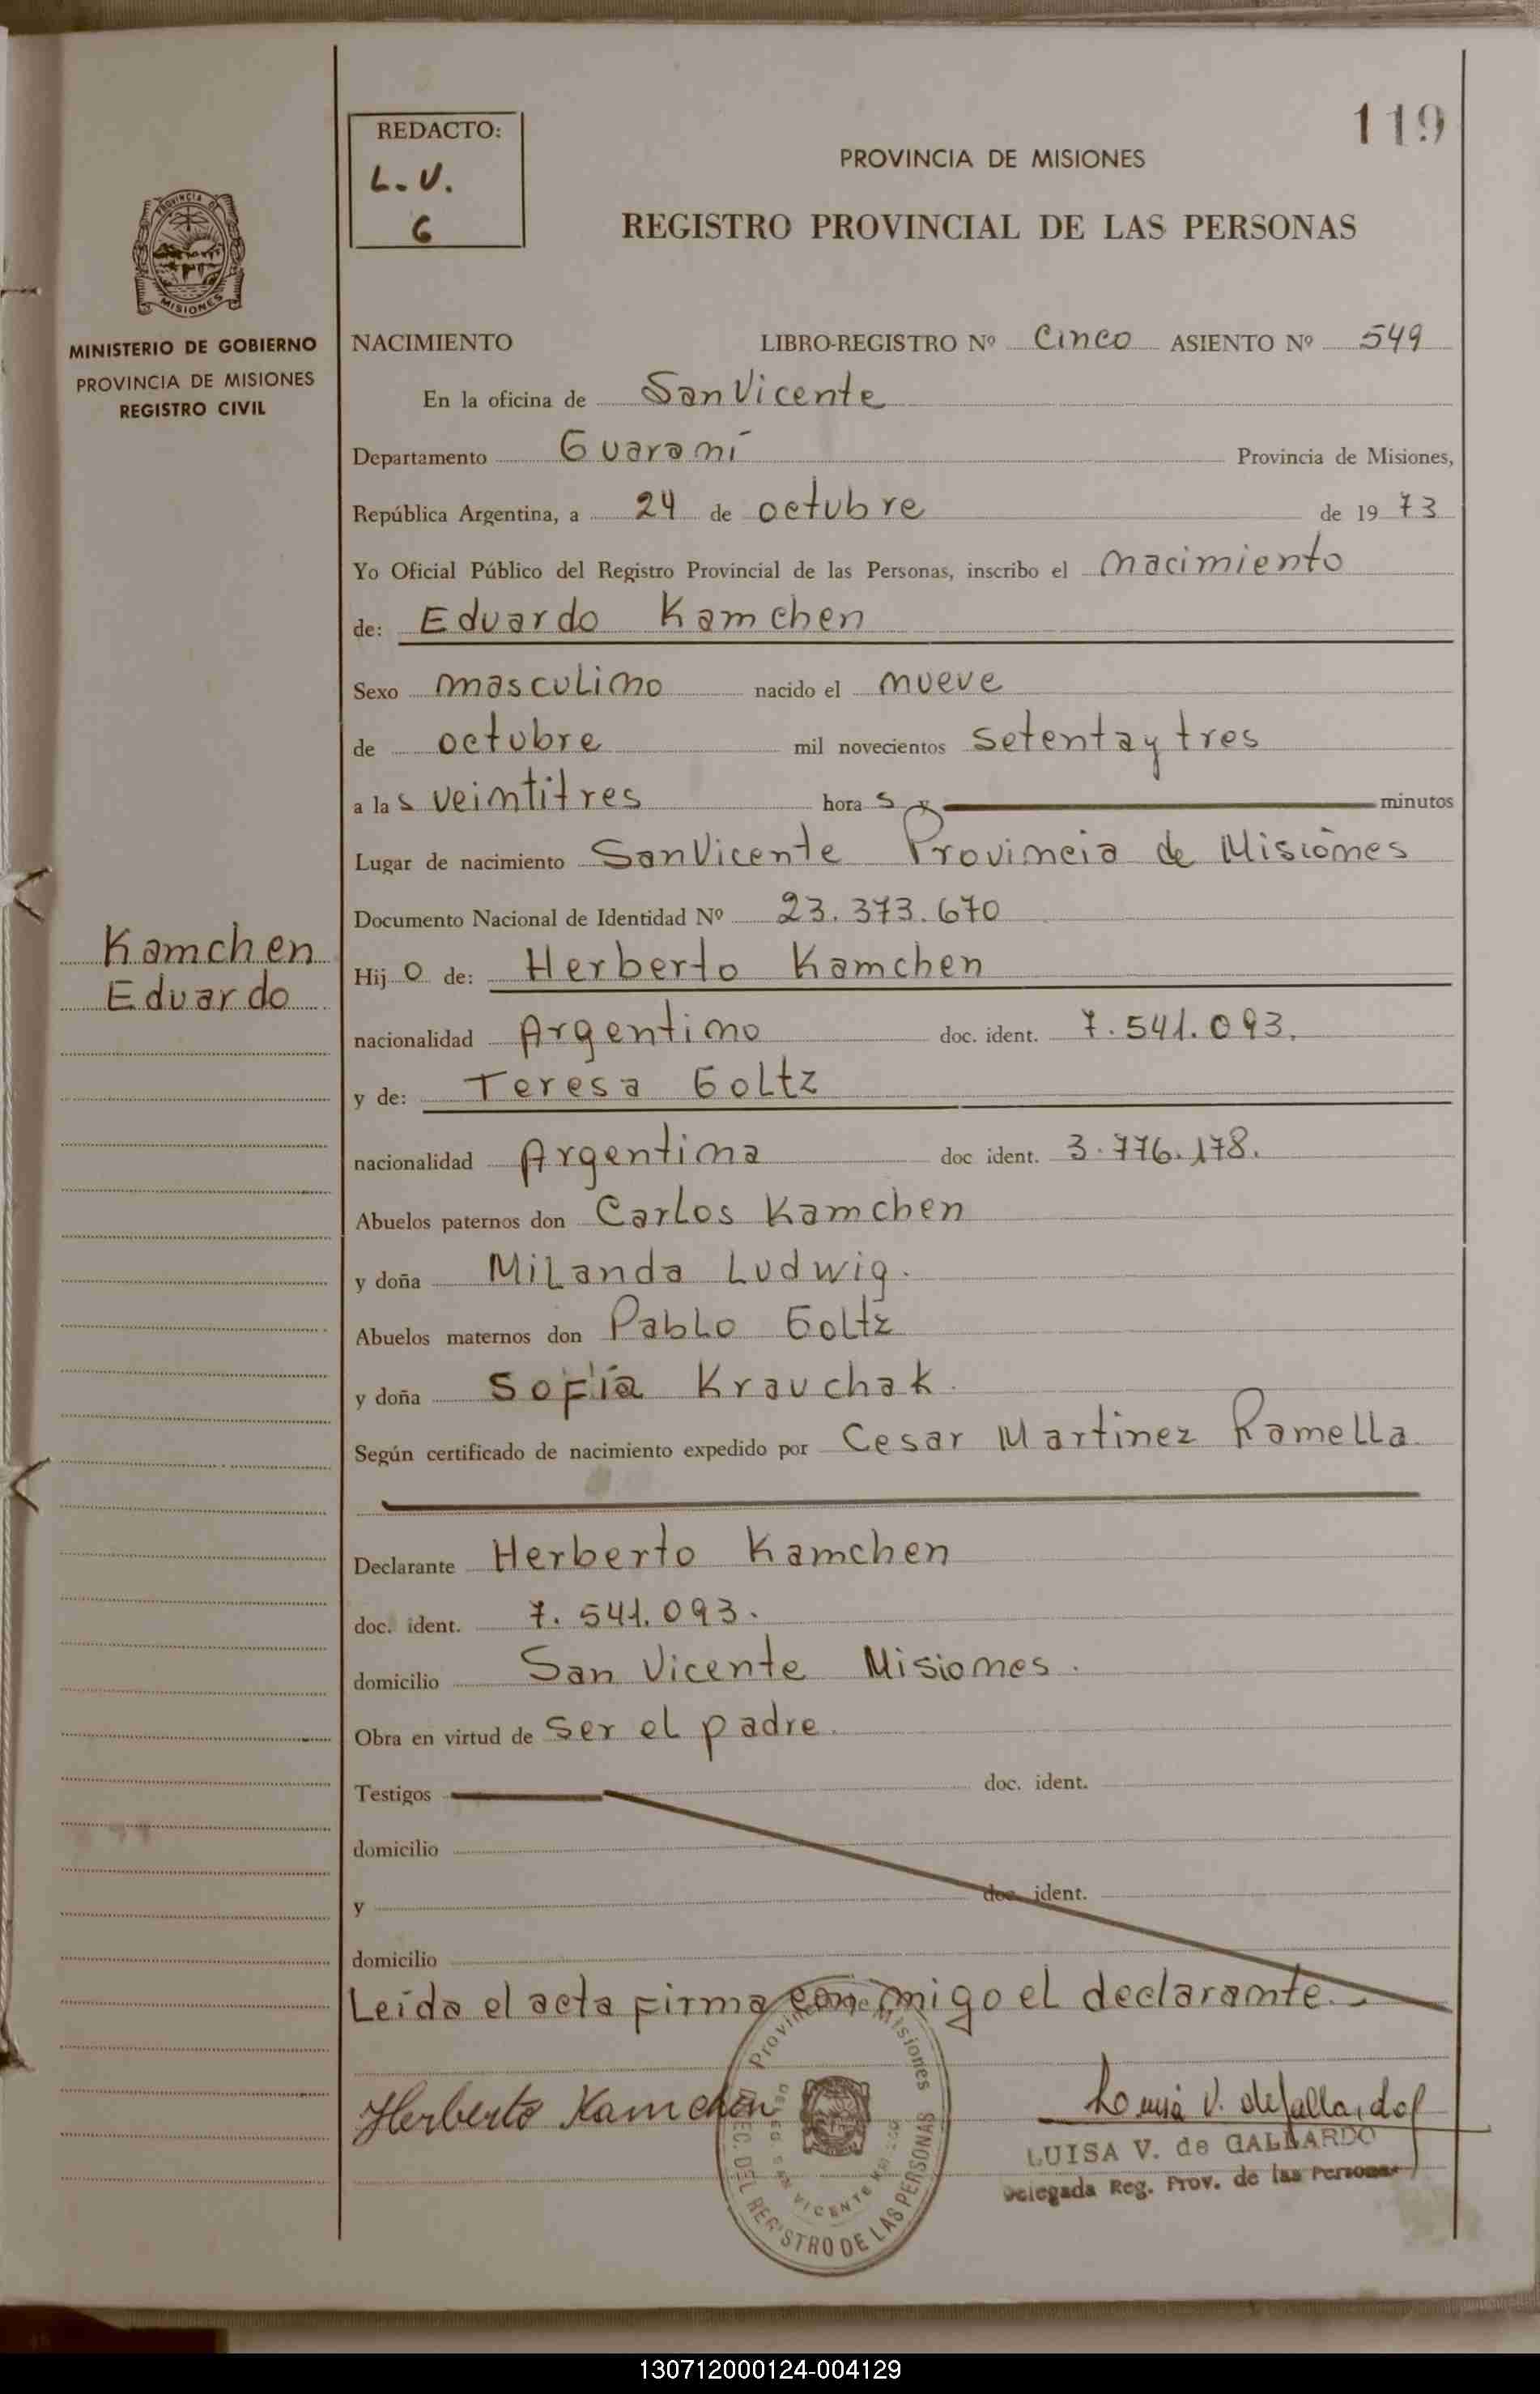 119
REDACTO:
L.V.
6
PROVINCIA DE MISIONES
REGISTRO PROVINCIAL DE LAS PERSONAS
PROVINCIA DE
MISIONES
MINISTERIO DE GOBIERNO
PROVINCIA DE MISIONES
REGISTRO CIVIL
NACIMIENTO LIBRO-REGISTRO Nº Cinco ASIENTO Nº 549
En la oficina de San Vicente
Departamento Guaraní Provincia de Misiones,
República Argentina, a 24 de octubre de 1973
Yo Oficial Público del Registro Provincial de las Personas, inscribo el nacimiento
de: Eduardo Kamchen
Sexo masculino nacido el nueve
de octubre mil novecientos setenta y tres
a las veintitres horas y minutos
Lugar de nacimiento San Vicente Provincia de Misiones
Documento Nacional de Identidad Nº 23.373.670
Kamchen
Eduardo
Hijo de: Herberto Kamchen
nacionalidad Argentino doc. ident. 7.541.093.
y de: Teresa Goltz
nacionalidad Argentina doc ident. 3.776.178.
Abuelos paternos don Carlos Kamchen
y doña Milanda Ludwig.
Abuelos maternos don Pablo Goltz
y doña Sofía Krauchak.
Según certificado de nacimiento expedido por Cesar Martinez Ramella
Declarante Herberto Kamchen
doc. ident. 7.541.093.
domicilio San Vicente Misiones.
Obra en virtud de ser el padre.
Testigos doc. ident.
domicilio
y doc. ident.
domicilio
Leida el acta firma conmigo el declarante.-
Herberto Kamchen
Provincia de Misiones
DEC. DEL REGISTRO DE LAS PERSONAS
SAN VICENTE
Luisa V. de Gallardo
LUISA V. de GALLARDO
Delegada Reg. Prov. de las Personas
130712000124-004129